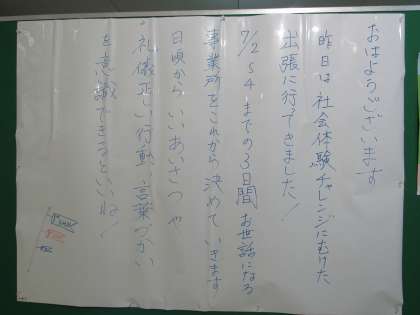 おはようございます
昨日は社会体験チャレンジにむけた
出張に行てきました！
7/2〜4までの3日間お世話になる
事業所をこれから決めていきます
日頃からいいあいさつや
礼儀正しい行動、言葉づかい
を意識できるといいね！